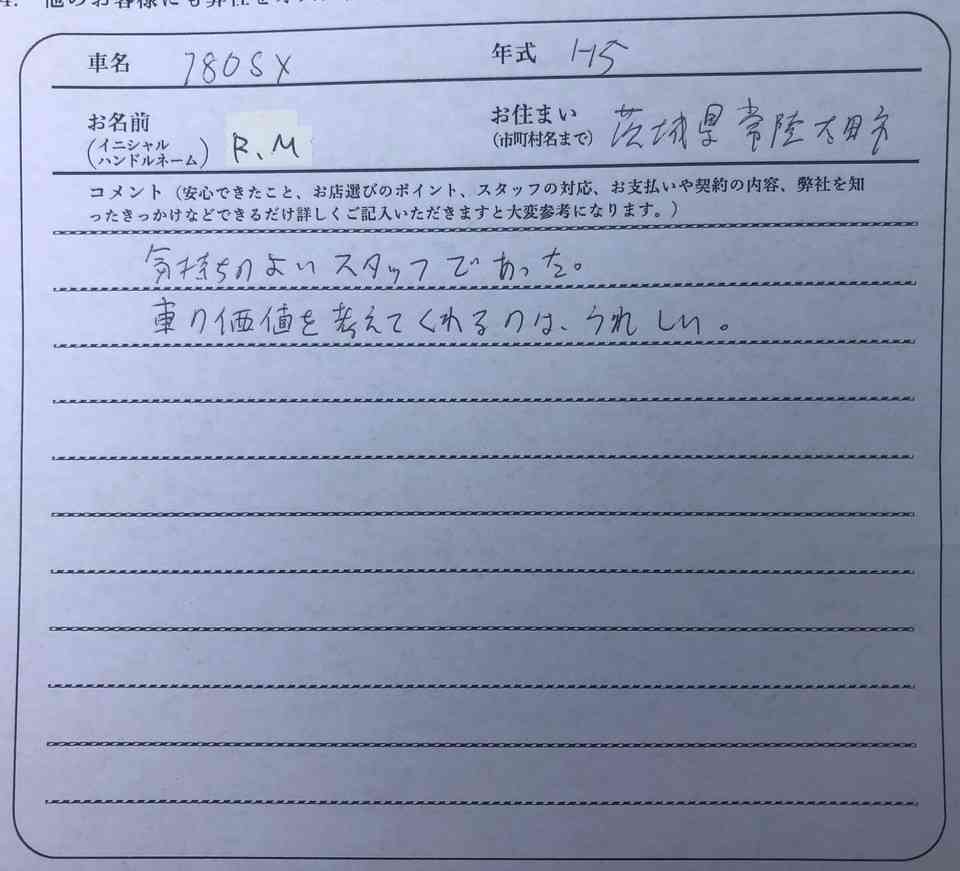 4. 他のお客様にも弊社を
車名 180SX 年式 H5
お名前 (イニシャル ハンドルネーム) R.M お住まい (市町村名まで) 茨城県常陸太田市
コメント（安心できたこと、お店選びのポイント、スタッフの対応、お支払いや契約の内容、弊社を知
ったきっかけなどできるだけ詳しくご記入いただきますと大変参考になります。）
気持ちのよいスタッフであった。
車の価値を考えてくれるのは、うれしい。